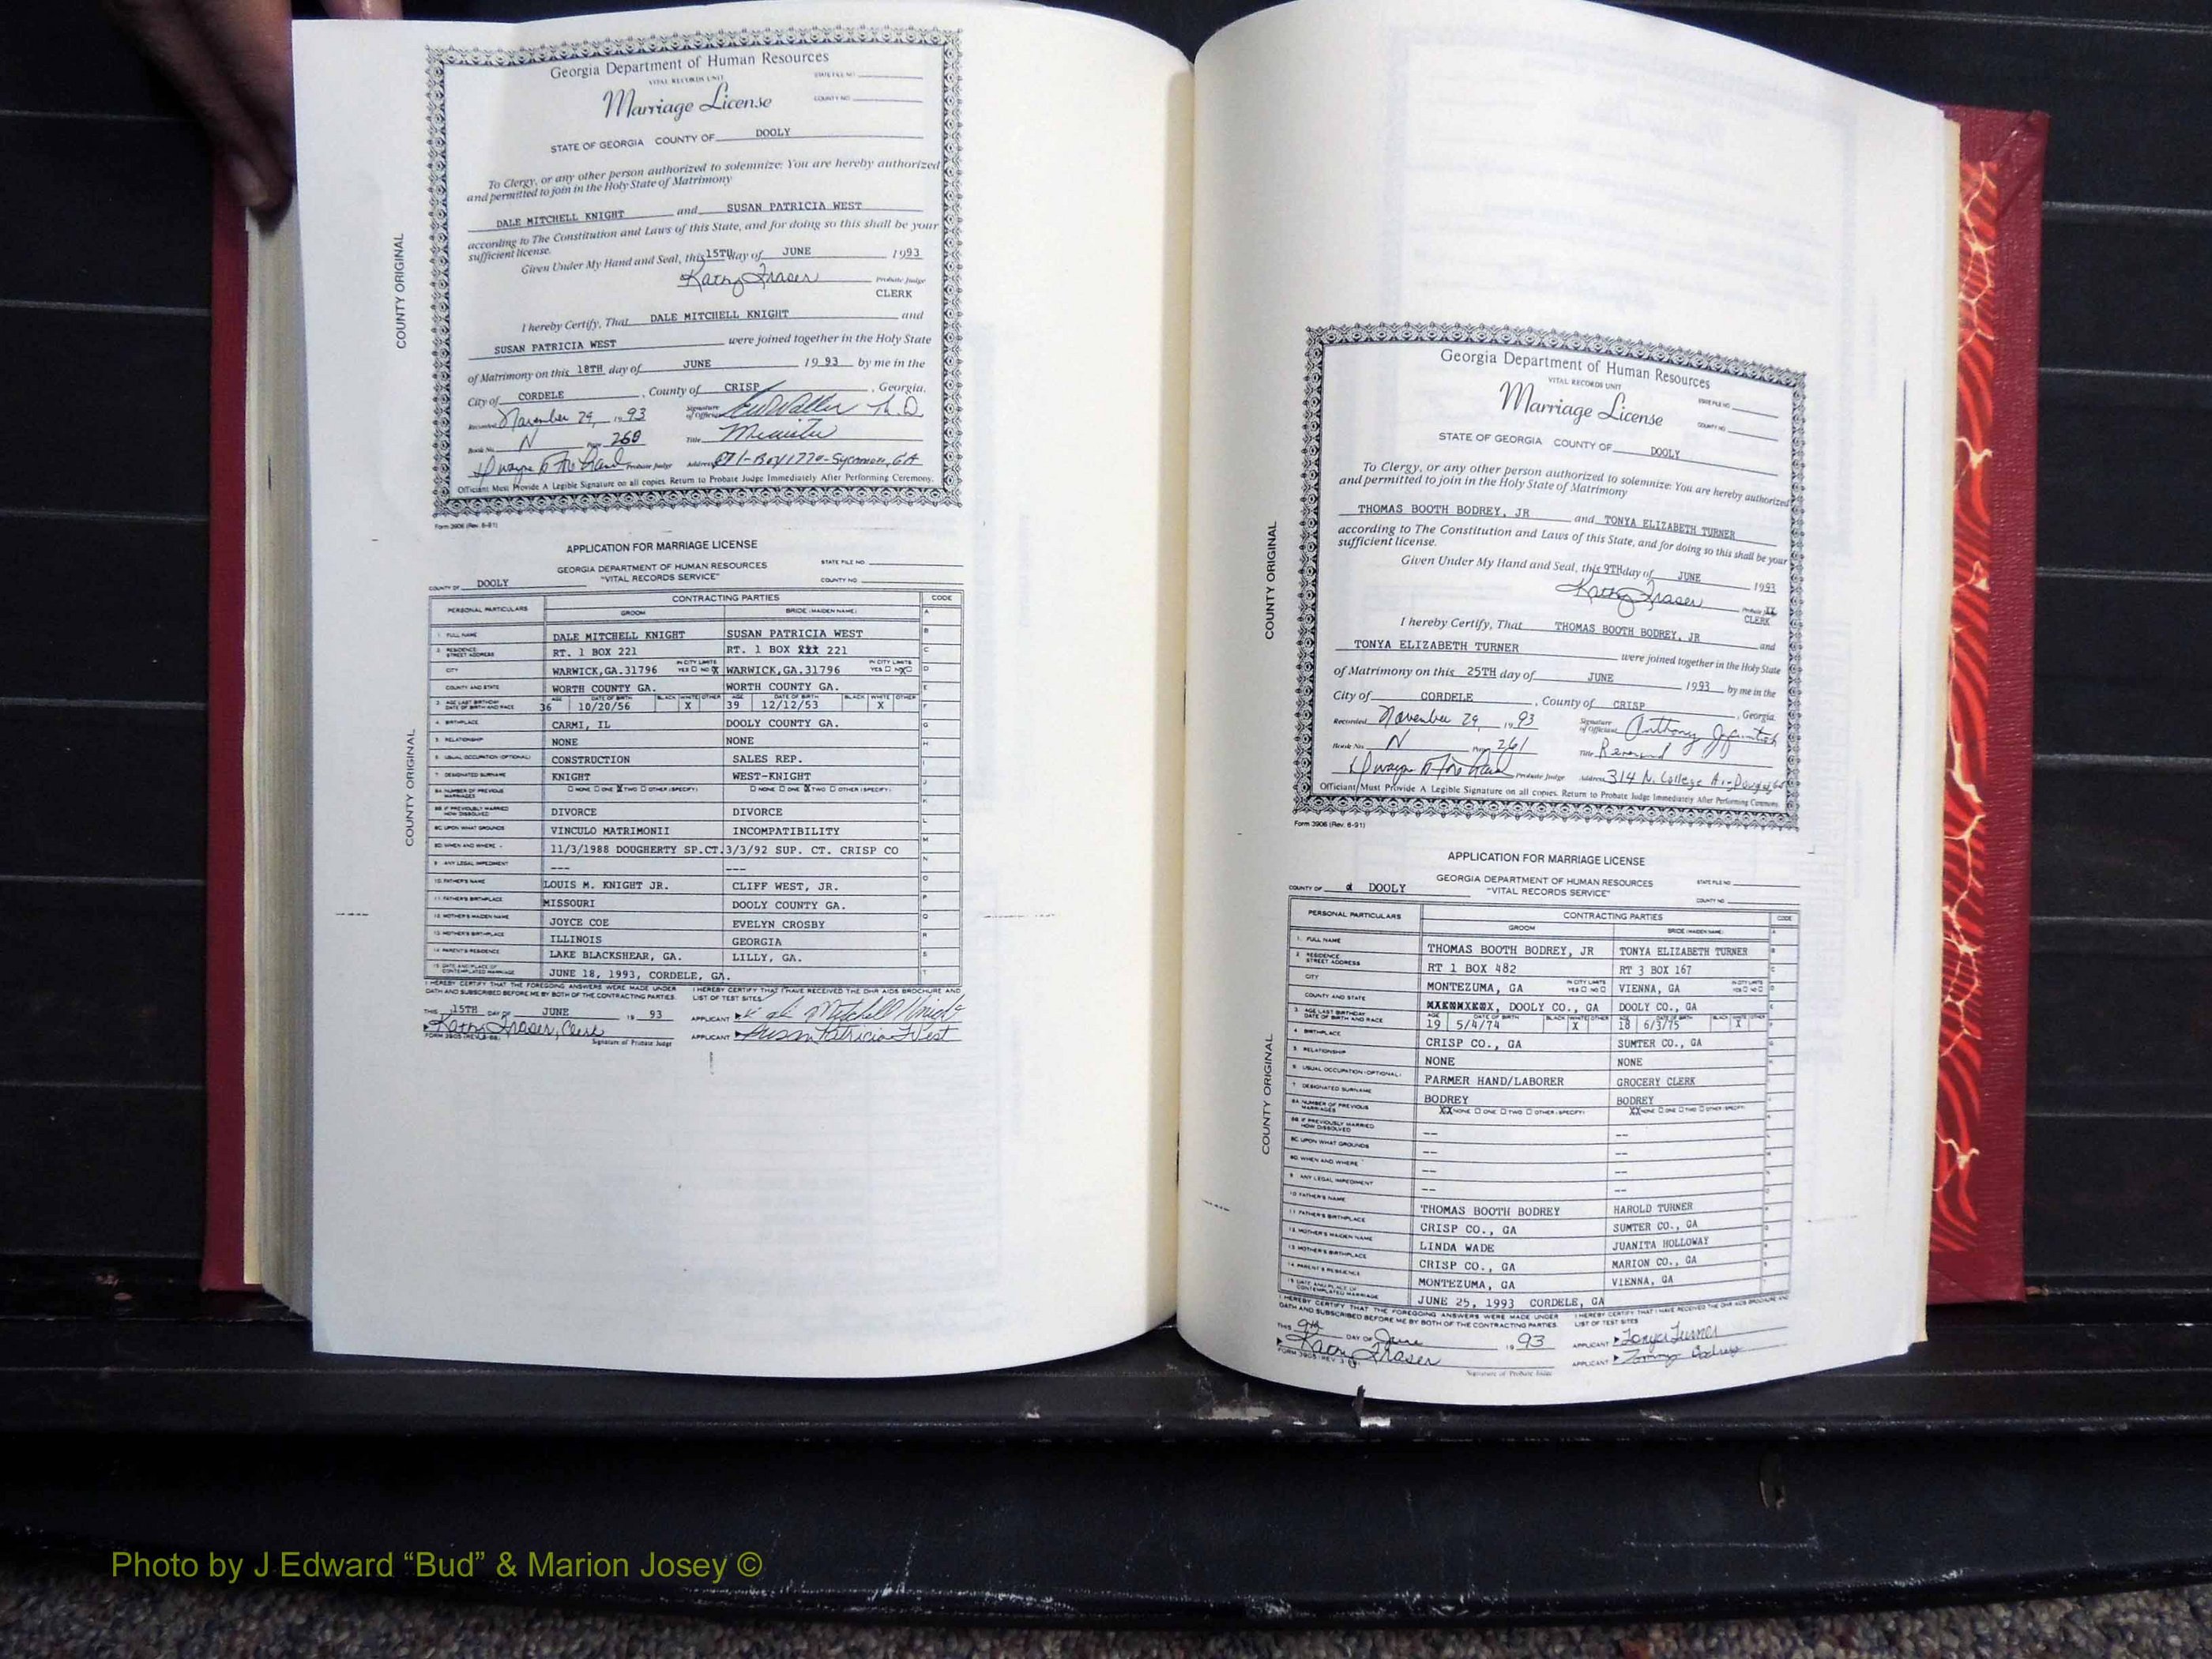 Georgia Department of Human Resources
VITAL RECORDS UNIT
STATE FILE NO.
Marriage License
COUNTY NO.
STATE OF GEORGIA COUNTY OF DOOLY
To Clergy, or any other person authorized to solemnize: You are hereby authorized
and permitted to join in the Holy State of Matrimony
DALE MITCHELL KNIGHT and SUSAN PATRICIA WEST
according to The Constitution and Laws of this State, and for doing so this shall be your
sufficient license.
Given Under My Hand and Seal, this 15TH day of JUNE 1993
Kathy Fraser Probate Judge
CLERK
I hereby Certify, That DALE MITCHELL KNIGHT and
SUSAN PATRICIA WEST were joined together in the Holy State
of Matrimony on this 18TH day of JUNE 19 93 by me in the
City of CORDELE, County of CRISP, Georgia.
Recorded November 29, 19 93 Signature of Official
Book No. N Page 260 Title Minister
Probate Judge Address Rt 1-Box 1770-Sycamore, GA
Officiant Must Provide A Legible Signature on all copies. Return to Probate Judge Immediately After Performing Ceremony.
Form 3906 (Rev. 6-91)
COUNTY ORIGINAL
APPLICATION FOR MARRIAGE LICENSE
GEORGIA DEPARTMENT OF HUMAN RESOURCES STATE FILE NO.
COUNTY OF DOOLY "VITAL RECORDS SERVICE" COUNTY NO.
PERSONAL PARTICULARS CONTRACTING PARTIES CODE
GROOM BRIDE (MAIDEN NAME)
1. FULL NAME DALE MITCHELL KNIGHT SUSAN PATRICIA WEST
2. RESIDENCE STREET ADDRESS RT. 1 BOX 221 RT. 1 BOX XXX 221
CITY WARWICK, GA. 31796 IN CITY LIMITS YES NO X WARWICK, GA. 31796 IN CITY LIMITS YES NO X
COUNTY AND STATE WORTH COUNTY GA. WORTH COUNTY GA.
3. AGE LAST BIRTHDAY DATE OF BIRTH AND RACE 36 10/20/56 X 39 12/12/53 X
4. BIRTHPLACE CARMI, IL DOOLY COUNTY GA.
5. RELATIONSHIP NONE NONE
6. USUAL OCCUPATION (OPTIONAL) CONSTRUCTION SALES REP.
7. DESIGNATED SURNAME KNIGHT WEST-KNIGHT
8A. NUMBER OF PREVIOUS MARRIAGES NONE ONE X TWO OTHER (SPECIFY) NONE ONE X TWO OTHER (SPECIFY)
8B. IF PREVIOUSLY MARRIED HOW DISSOLVED DIVORCE DIVORCE
8C. UPON WHAT GROUNDS VINCULO MATRIMONII INCOMPATIBILITY
8D. WHEN AND WHERE 11/3/1988 DOUGHERTY SP.CT. 3/3/92 SUP. CT. CRISP CO
9. ANY LEGAL IMPEDIMENT --- ---
10. FATHER'S NAME LOUIS M. KNIGHT JR. CLIFF WEST, JR.
11. FATHER'S BIRTHPLACE MISSOURI DOOLY COUNTY GA.
12. MOTHER'S MAIDEN NAME JOYCE COE EVELYN CROSBY
13. MOTHER'S BIRTHPLACE ILLINOIS GEORGIA
14. PARENT'S RESIDENCE LAKE BLACKSHEAR, GA. LILLY, GA.
15. DATE AND PLACE OF CONTEMPLATED MARRIAGE JUNE 18, 1993, CORDELE, GA.
I HEREBY CERTIFY THAT THE FOREGOING ANSWERS WERE MADE UNDER I HEREBY CERTIFY THAT I HAVE RECEIVED THE DHR AIDS BROCHURE AND
OATH AND SUBSCRIBED BEFORE ME BY BOTH OF THE CONTRACTING PARTIES. LIST OF TEST SITES
THIS 15TH DAY OF JUNE 19 93 APPLICANT Mitchell Knight
Kathy Fraser, Clerk APPLICANT Susan Patricia West
FORM 3905 Signature of Probate Judge
COUNTY ORIGINAL
Georgia Department of Human Resources
VITAL RECORDS UNIT
STATE FILE NO.
Marriage License
COUNTY NO.
STATE OF GEORGIA COUNTY OF DOOLY
To Clergy, or any other person authorized to solemnize: You are hereby authorized
and permitted to join in the Holy State of Matrimony
THOMAS BOOTH BODREY, JR and TONYA ELIZABETH TURNER
according to The Constitution and Laws of this State, and for doing so this shall be your
sufficient license.
Given Under My Hand and Seal, this 9TH day of JUNE 1993
Kathy Fraser Probate XX
CLERK
I hereby Certify, That THOMAS BOOTH BODREY, JR and
TONYA ELIZABETH TURNER were joined together in the Holy State
of Matrimony on this 25TH day of JUNE 1993 by me in the
City of CORDELE, County of CRISP, Georgia.
Recorded November 29, 19 93 Signature of Official Anthony
Book No. N Page 261 Title Reverend
Probate Judge Address 314 N. College
Officiant Must Provide A Legible Signature on all copies. Return to Probate Judge Immediately After Performing Ceremony.
Form 3906 (Rev. 6-91)
COUNTY ORIGINAL
APPLICATION FOR MARRIAGE LICENSE
GEORGIA DEPARTMENT OF HUMAN RESOURCES STATE FILE NO.
COUNTY OF DOOLY "VITAL RECORDS SERVICE" COUNTY NO.
PERSONAL PARTICULARS CONTRACTING PARTIES CODE
GROOM BRIDE (MAIDEN NAME)
1. FULL NAME THOMAS BOOTH BODREY, JR TONYA ELIZABETH TURNER
2. RESIDENCE STREET ADDRESS RT 1 BOX 482 RT 3 BOX 167
CITY MONTEZUMA, GA IN CITY LIMITS YES NO VIENNA, GA IN CITY LIMITS YES NO
COUNTY AND STATE DOOLY CO., GA DOOLY CO., GA
3. AGE LAST BIRTHDAY DATE OF BIRTH AND RACE 19 5/4/74 X 18 6/3/75 X
4. BIRTHPLACE CRISP CO., GA SUMTER CO., GA
5. RELATIONSHIP NONE NONE
6. USUAL OCCUPATION (OPTIONAL) PARMER HAND/LABORER GROCERY CLERK
7. DESIGNATED SURNAME BODREY BODREY
8A. NUMBER OF PREVIOUS MARRIAGES XX NONE ONE TWO OTHER (SPECIFY) XX NONE ONE TWO OTHER (SPECIFY)
8B. IF PREVIOUSLY MARRIED HOW DISSOLVED -- --
8C. UPON WHAT GROUNDS -- --
8D. WHEN AND WHERE -- --
9. ANY LEGAL IMPEDIMENT -- --
10. FATHER'S NAME THOMAS BOOTH BODREY HAROLD TURNER
11. FATHER'S BIRTHPLACE CRISP CO., GA SUMTER CO., GA
12. MOTHER'S MAIDEN NAME LINDA WADE JUANITA HOLLOWAY
13. MOTHER'S BIRTHPLACE CRISP CO., GA MARION CO., GA
14. PARENT'S RESIDENCE MONTEZUMA, GA VIENNA, GA
15. DATE AND PLACE OF CONTEMPLATED MARRIAGE JUNE 25, 1993 CORDELE, GA
I HEREBY CERTIFY THAT THE FOREGOING ANSWERS WERE MADE UNDER I HEREBY CERTIFY THAT I HAVE RECEIVED THE DHR AIDS BROCHURE AND
OATH AND SUBSCRIBED BEFORE ME BY BOTH OF THE CONTRACTING PARTIES LIST OF TEST SITES
THIS 9th DAY OF June 19 93 APPLICANT Tonya Turner
Kathy Fraser APPLICANT Tommy Bodrey
Signature of Probate Judge
COUNTY ORIGINAL
Photo by J Edward “Bud” & Marion Josey ©